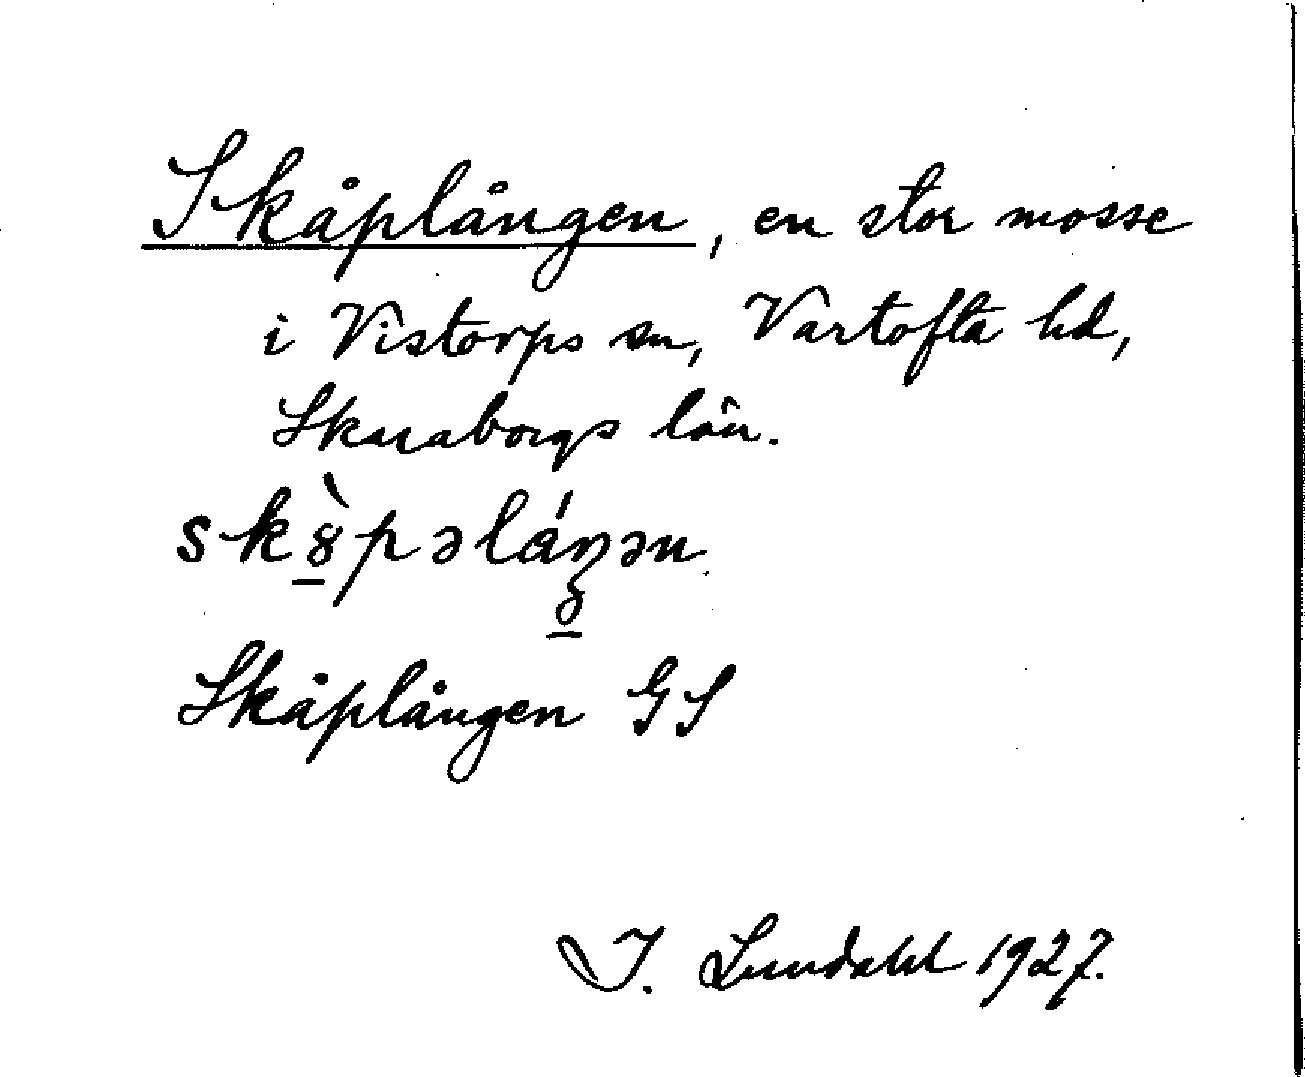 Skåplången, en stor mosse
i Vistorps sn, Vartofta hd,
Skaraborgs län.
sk8̱̀pəláŋən
Skåplången GS
I. Lundahl 1927.